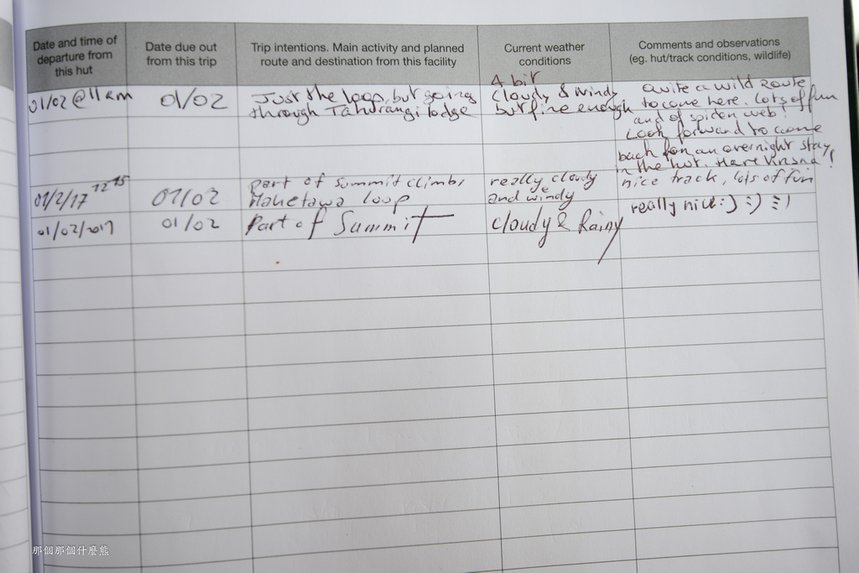 Date and time of
departure from
this hut
Date due out
from this trip
Trip intentions. Main activity and planned
route and destination from this facility
Current weather
conditions
Comments and observations
(eg. hut/track conditions, wildlife)
01/02 @ 11am
01/02
Just the loop, but going
through Tahurangi lodge
A bit
cloudy & windy
but fine enough
Quite a wild route
to come here. Lots of fun
and of spider web!
Look forward to come
back for an overnight stay
in the hut.
01/2/17 1215
01/02
part of summit climb,
Maketawa loop
really cloudy
and windy
nice track, lots of fun
01/02/2017
01/02
Part of Summit
cloudy & Rainy
really nice :) :)
那個那個什麼熊